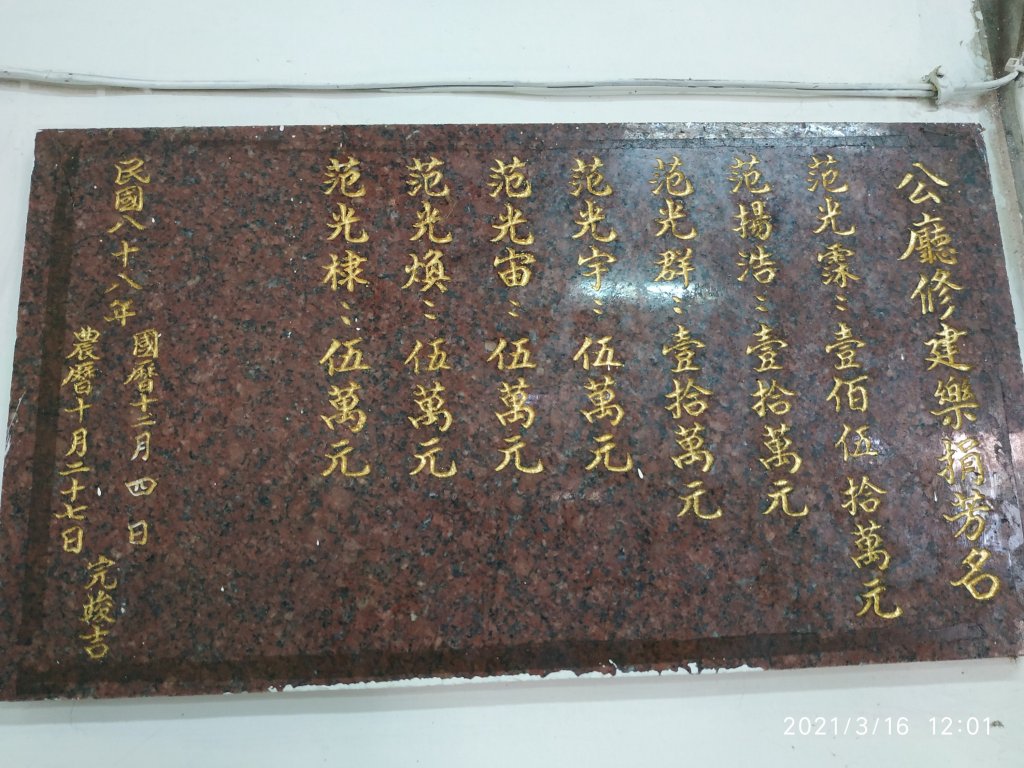 公廳修建樂捐芳名
范光霖：壹佰伍拾萬元
范揚浩：壹拾萬元
范光群：壹拾萬元
范光宇：伍萬元
范光宙：伍萬元
范光煥：伍萬元
范光棣：伍萬元
民國八十八年
國曆十二月四日
農曆十月二十七日
完竣吉
2021/3/16 12:01